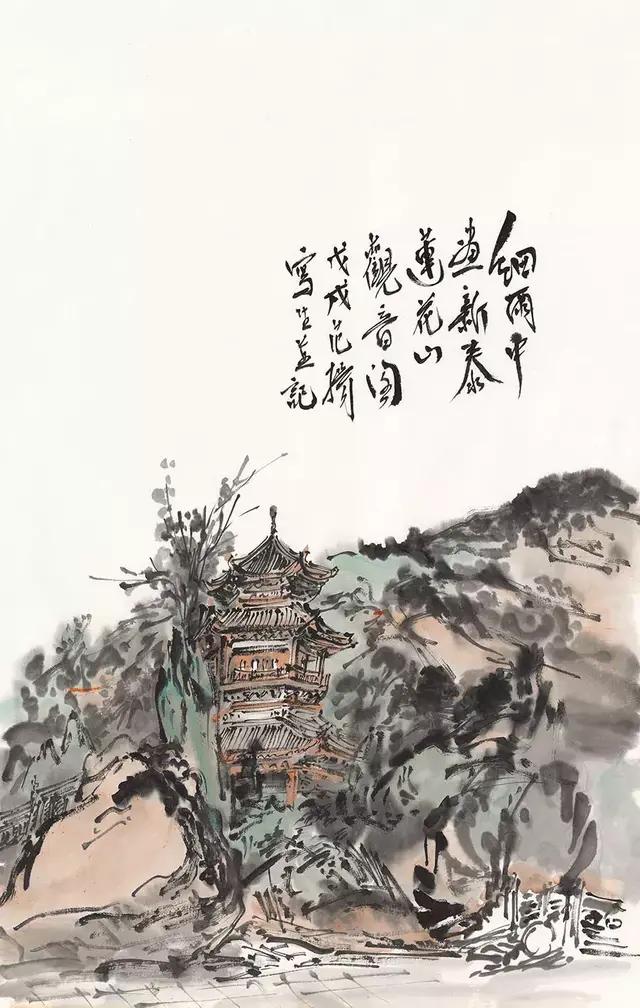 細雨中
畫新泰
蓮花山
觀音閣
戊戌范揚
寫生並記